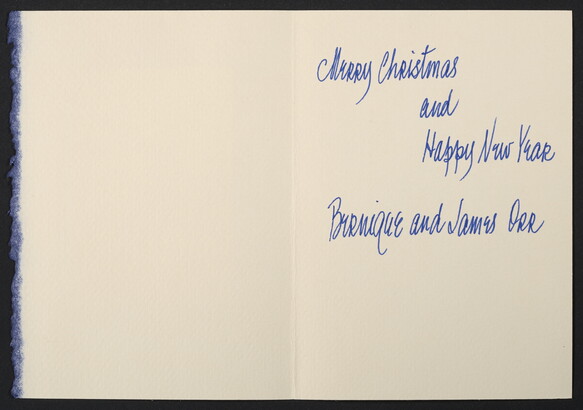 Merry Christmas
and
Happy New Year
Bernique and James Orr